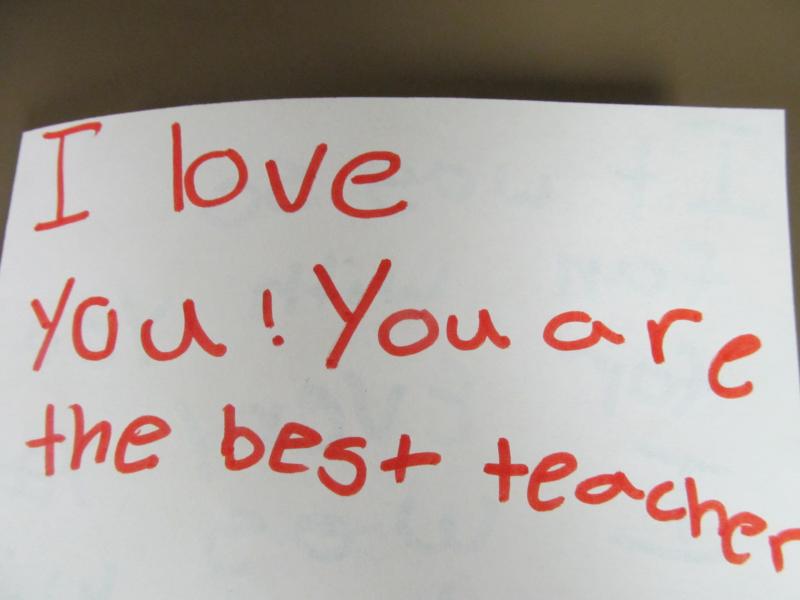 I love
you! You are
the best teacher